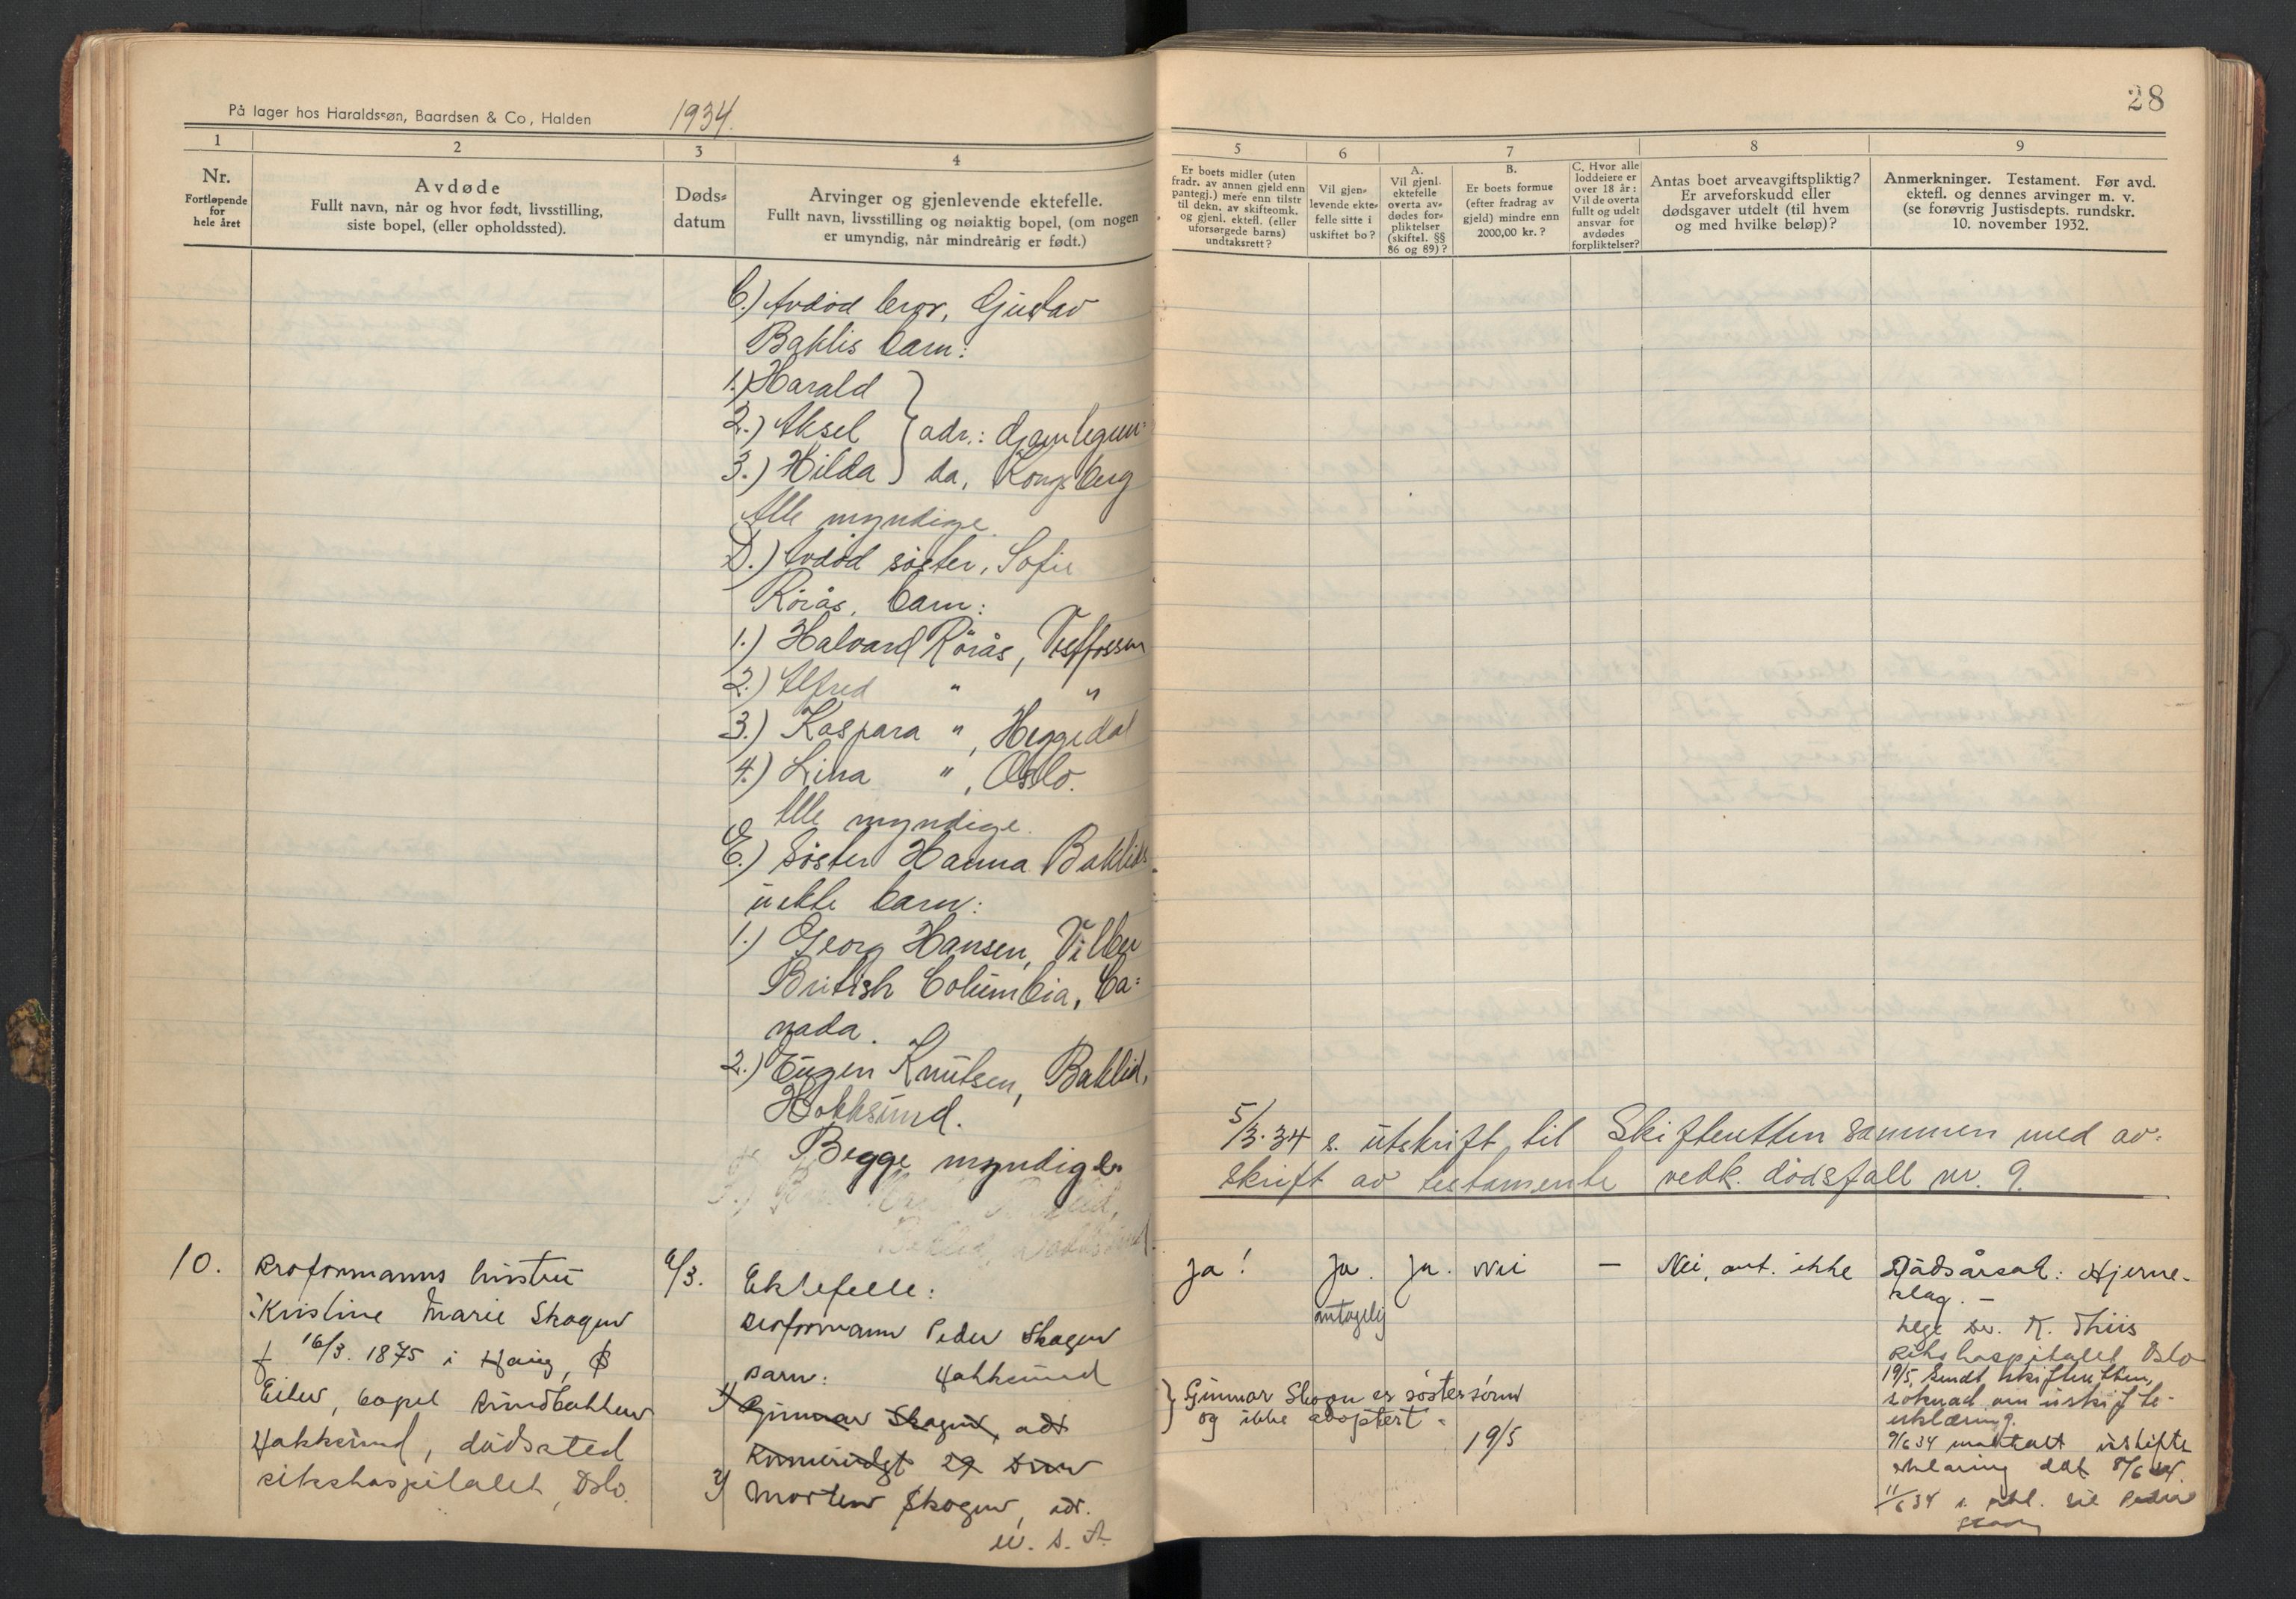 På lager hos Haraldssøn, Baardsen & Co, Halden
1934.
1
2
3
4
Nr.
Fortløpende
for
hele året
Avdøde
Fullt navn, når og hvor født, livsstilling,
siste bopel, (eller opholdssted).
Døds=
datum
Arvinger og gjenlevende ektefelle.
Fullt navn, livsstilling og nøiaktig bopel, (om nogen
er umyndig, når mindreårig er født.)
C.) Avdød bror, Gustav
Baklis barn:
1.) Harald
2.) Aksel adr.: Gamlegrun=
3.) Hilda da, Kongsberg
Alle myndige
D.) Avdød søster, Sofie
Rørås, barn:
1.) Halvard Rørås, Vestfossen
2.) Alfred " "
3.) Kaspara ", Heggedal
4.) Lina ", Oslo.
Alle myndige.
E.) Søster Hanna Baklids
uekte barn:
1.) Georg Hansen,
British Columbia, Ca=
nada.
2.) Eugen Knutsen, Baklid,
Hokksund.
Begge myndige.
10.
Proformanns hustru
Kristine Marie Skogen
f 16/3. 1875 i Haug, Ø
Eiker, bopel Rundbakken
Hokksund, dødssted
rikshospitalet, Oslo.
6/3.
Ektefelle:
Proformann Peder Skogen
Hokksund
Barn:
1) Gunnar Skogen, adr
29
2) Morten Skogen, adr.
U. S. A.
28
5
6
7
8
9
Er boets midler (uten
fradr. av annen gjeld enn
pantegj.) mere enn tilstr
til dekn. av skifteomk.
og gjenl. ektefl. (eller
uforsørgede barns)
undtaksrett?
Vil gjen=
levende ekte=
felle sitte i
uskiftet bo?
A.
Vil gjenl.
ektefelle
overta av=
dødes for=
pliktelser
(skiftel. §§
86 og 89)?
B.
Er boets formue
(efter fradrag av
gjeld) mindre enn
2000,00 kr.?
C. Hvor alle
loddeiere er
over 18 år:
Vil de overta
fullt og udelt
ansvar for
avdødes
forpliktelser?
Antas boet arveavgiftspliktig?
Er arveforskudd eller
dødsgaver utdelt (til hvem
og med hvilke beløp)?
Anmerkninger. Testament. Før avd.
ektefl. og dennes arvinger m. v.
(se forøvrig Justisdepts. rundskr.
10. november 1932.
5/3.34 s. utskrift til Skifteretten sammen med av=
skrift av testamente vedk. dødsfall nr. 9.
Ja!
Ja.
antagelig
Ja.
Nei
—
Nei, ant. ikke
Gunnar Skogen er søstersønn
og ikke adoptert.
19/5
Dødsårsak: Hjerne-
slag. –
Lege Dr. K. Thiis
Rikshospitalet Oslo
19/5. Sendt skifteretten,
søknad om uskifte-
erklæring.
9/6 34 mottatt uskifte
erklæring dat 8/6 34.
11/6 34 s. erkl. til Peder
Skogen